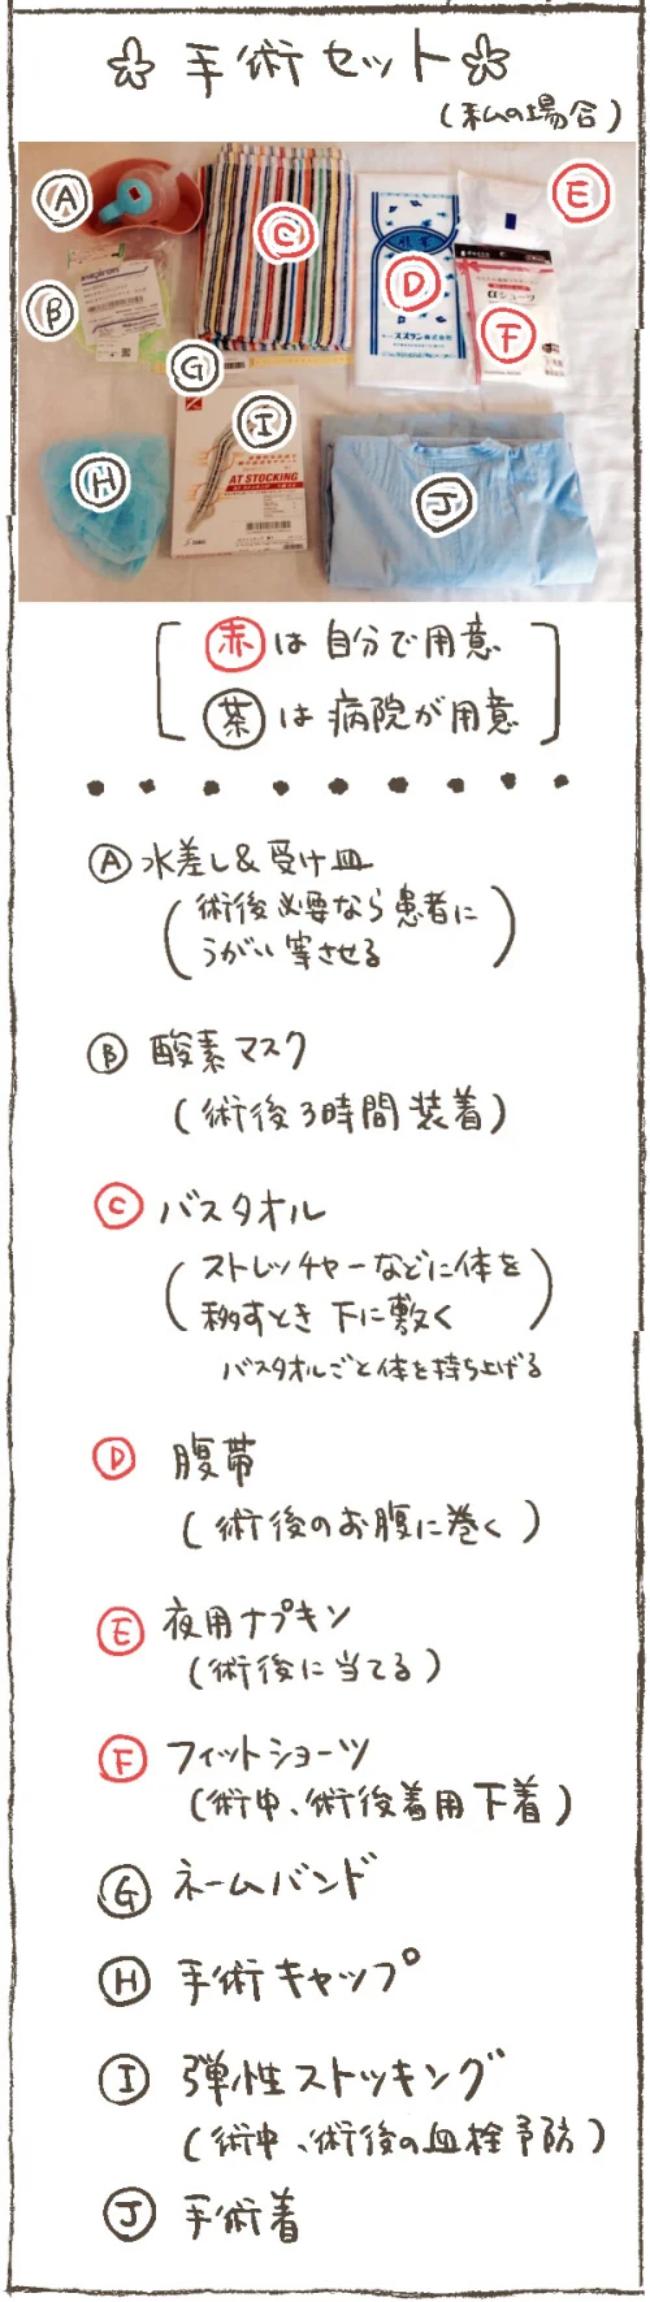 手術セット
(私の場合)
A
B
C
D
E
F
G
H
I
J
inspiron
腹帯
スズラン株式会社
αショーツ
AT STOCKING
赤は自分で用意
茶は病院が用意
A 水差し&受け皿
(術後必要なら患者に
うがい等させる)
B 酸素マスク
(術後3時間装着)
C バスタオル
(ストレッチャーなどに体を
移すとき下に敷く)
バスタオルごと体を持ち上げる
D 腹帯
(術後のお腹に巻く)
E 夜用ナプキン
(術後に当てる)
F フィットショーツ
(術中、術後着用下着)
G ネームバンド
H 手術キャップ
I 弾性ストッキング
(術中、術後の血栓予防)
J 手術着